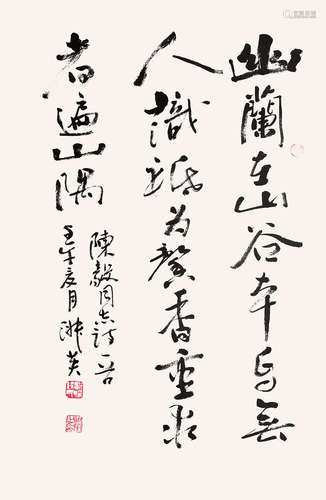 幽蘭在山谷本自無
人識祗為馨香重求
者遍山隅
陳毅同志詩一首
壬午夏月英